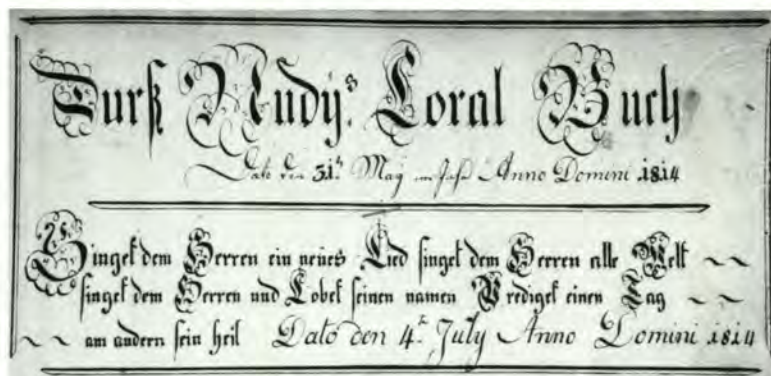 Durß Rudÿ,s Coral Buch
Dato den 31t May im Jahr Anno Domini 1814
Singet dem Herren ein neues Lied singet dem Herren alle Welt ~ ~
singet dem Herren und Lobet seinen namen Prediget einen Tag ~ ~
~ ~ am andern sein heil Dato den 4t July Anno Domini 1814